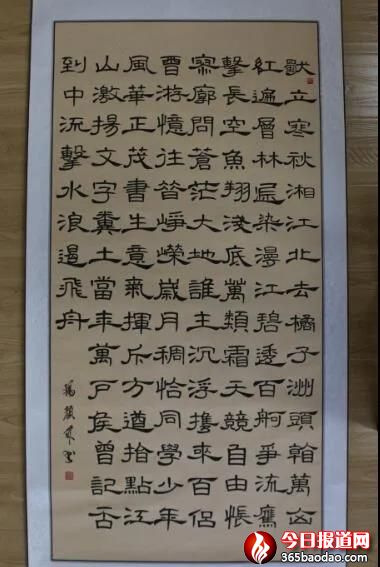 獨立寒秋湘江北去橘子洲頭看萬山
紅遍層林盡染漫江碧透百舸爭流鷹
擊長空魚翔淺底萬類霜天競自由悵
寥廓問蒼茫大地誰主沉浮攜來百侶
曾游憶往昔崢嶸歲月稠恰同學少年
風華正茂書生意氣揮斥方遒指點江
山激揚文字糞土當年萬戶侯曾記否
到中流擊水浪遏飛舟
今日报道网
365baodao.com